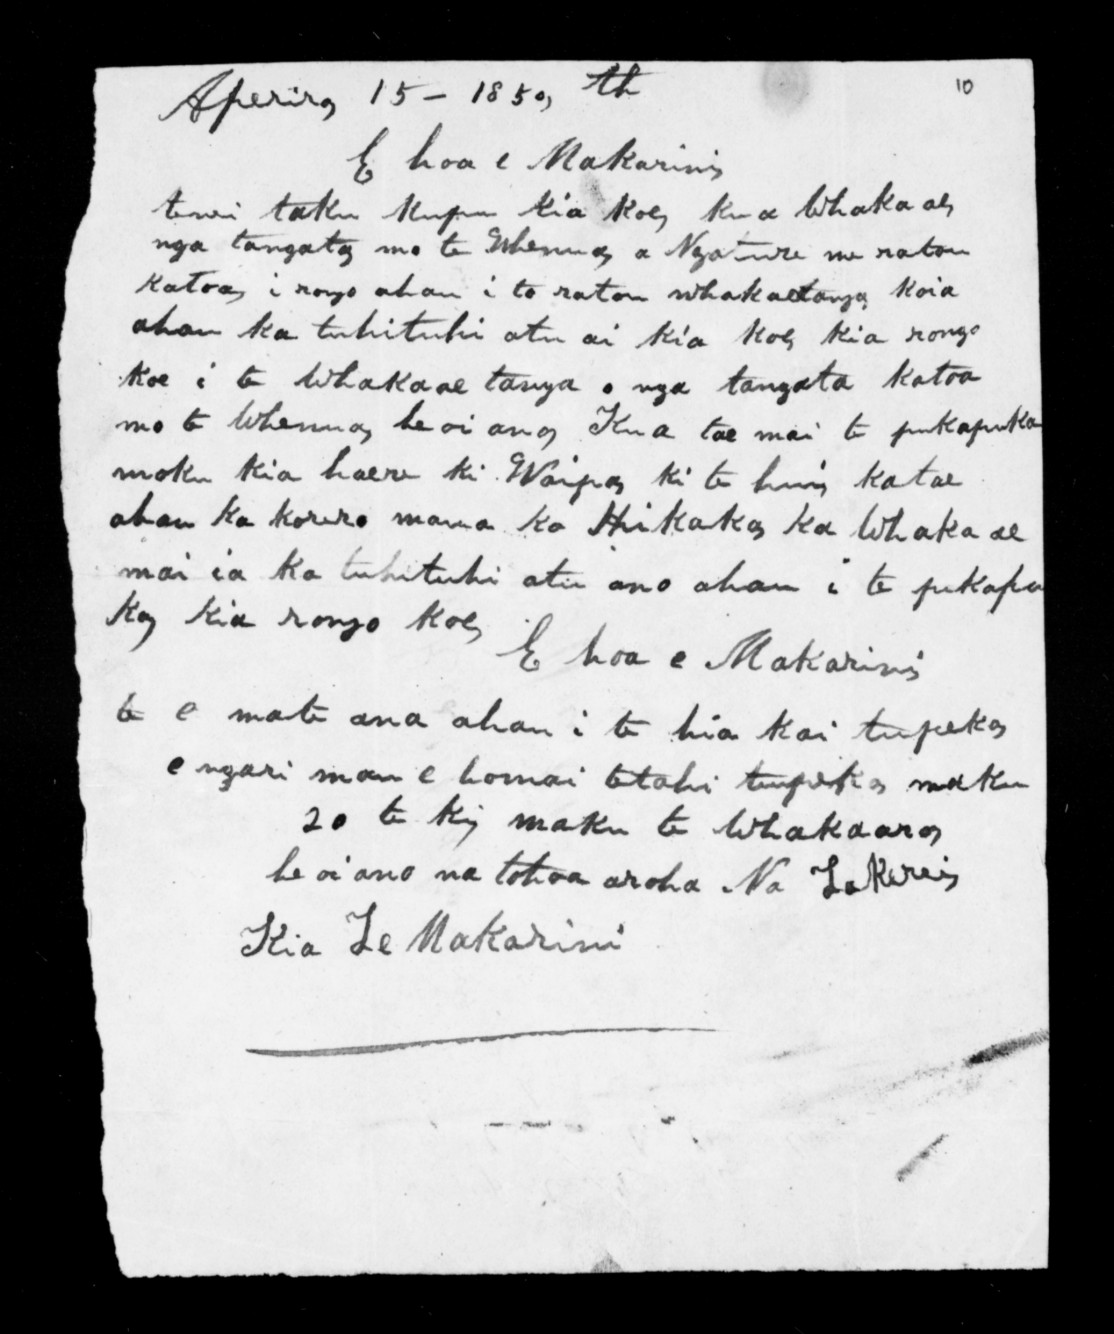 10
Aperira 15 - 1850, th
E hoa e Makarini
tenei taku kupu kia koe, kua Whakaae,
nga tangata mo te Whenua, a Ngature me ratou
katoa, i rongo ahau i to ratou whakaaetanga, koia
ahau ka tuhituhi atu ai kia koe, kia rongo
koe i te Whakaae tanga o nga tangata katoa
mo te Whenua, he oi ano, Kua tae mai te pukapuka
moku kia haere ki Waipa, ki te hui, ka tae
ahau ka korero maua ko Hikaka, ka Whaka ae
mai ia ka tuhituhi atu ano ahau i te pukapu
ka, kia rongo koe,
E hoa e Makarini
te e mate ana ahau i te hia kai tupeka,
e ngari mau e homai tetahi tupeka, maku
20 te ki, maku te Whakaaro,
he oi ano na tohoa aroha Na
Kia Te Makarini